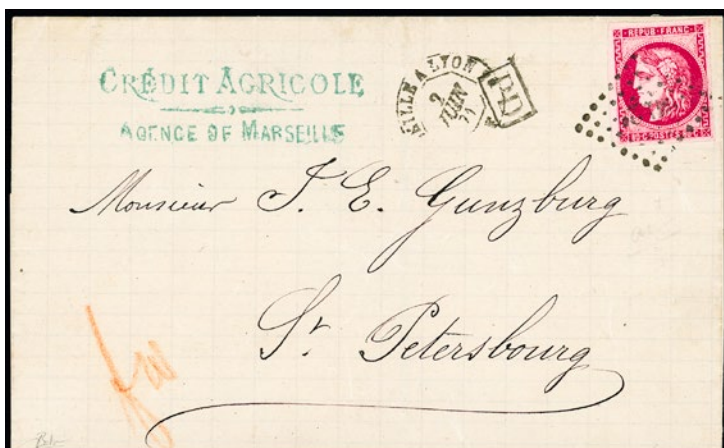 CRÉDIT AGRICOLE
AGENCE DE MARSEILLE
EILLE A LYON
2
JUIN
71
PD
REPUB·FRANC
80 C·POSTES 80
Monsieur J. E. Gunzburg
St. Petersbourg